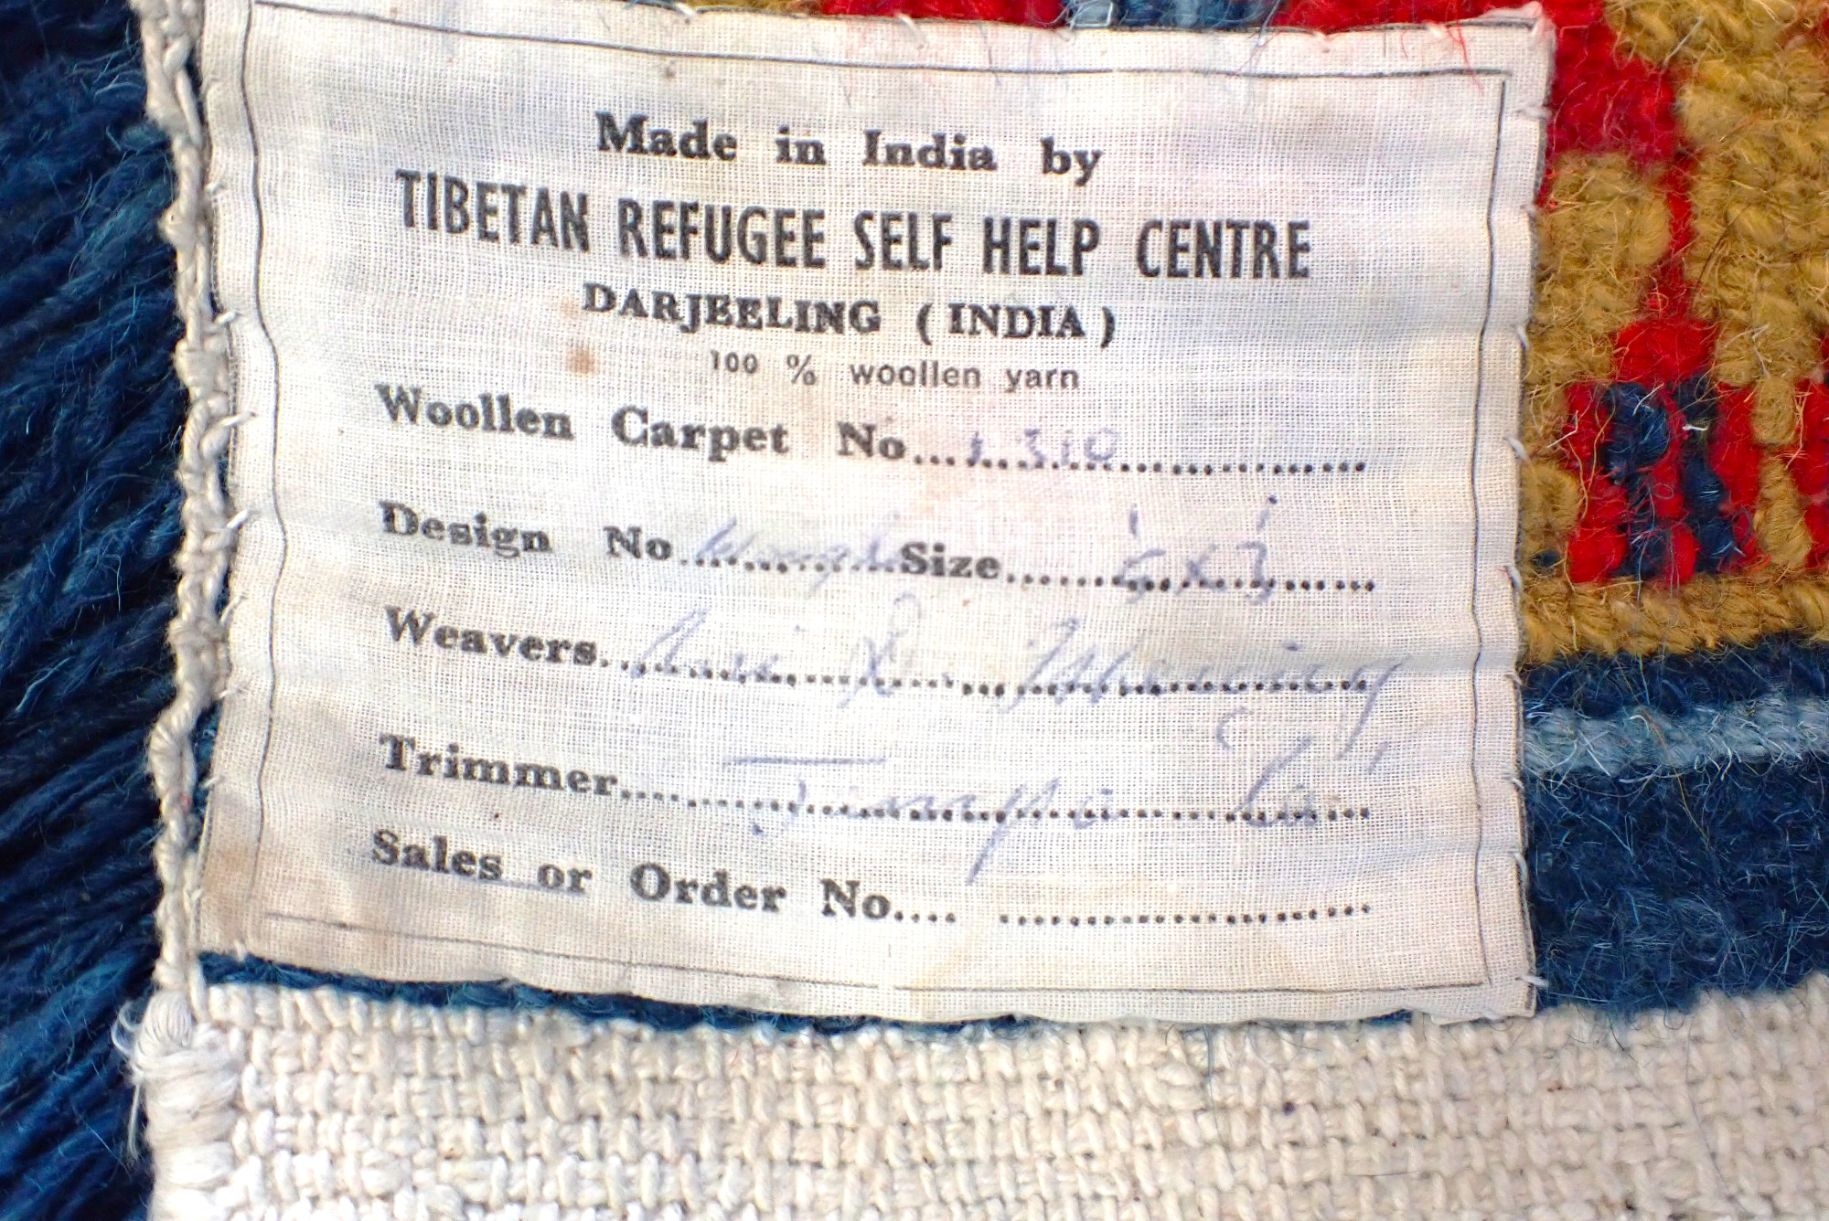 Made in India by
TIBETAN REFUGEE SELF HELP CENTRE
DARJEELING (INDIA)
100 % woollen yarn
Woollen Carpet No....1310....................
Design No.................Size......6' x 3'...........
Weavers..............................................
Trimmer....................................... La.....
Sales or Order No.... ........................